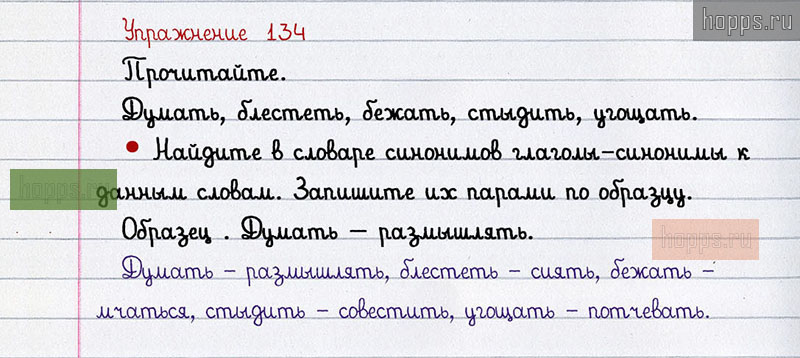 hopps.ru
Упражнение 134
Прочитайте.
Думать, блестеть, бежать, стыдить, угощать.
• Найдите в словаре синонимов глаголы-синонимы к
hopps.ru
данным словам. Запишите их парами по образцу.
Образец . Думать – размышлять.
hopps.ru
Думать – размышлять, блестеть – сиять, бежать –
мчаться, стыдить – совестить, угощать – потчевать.